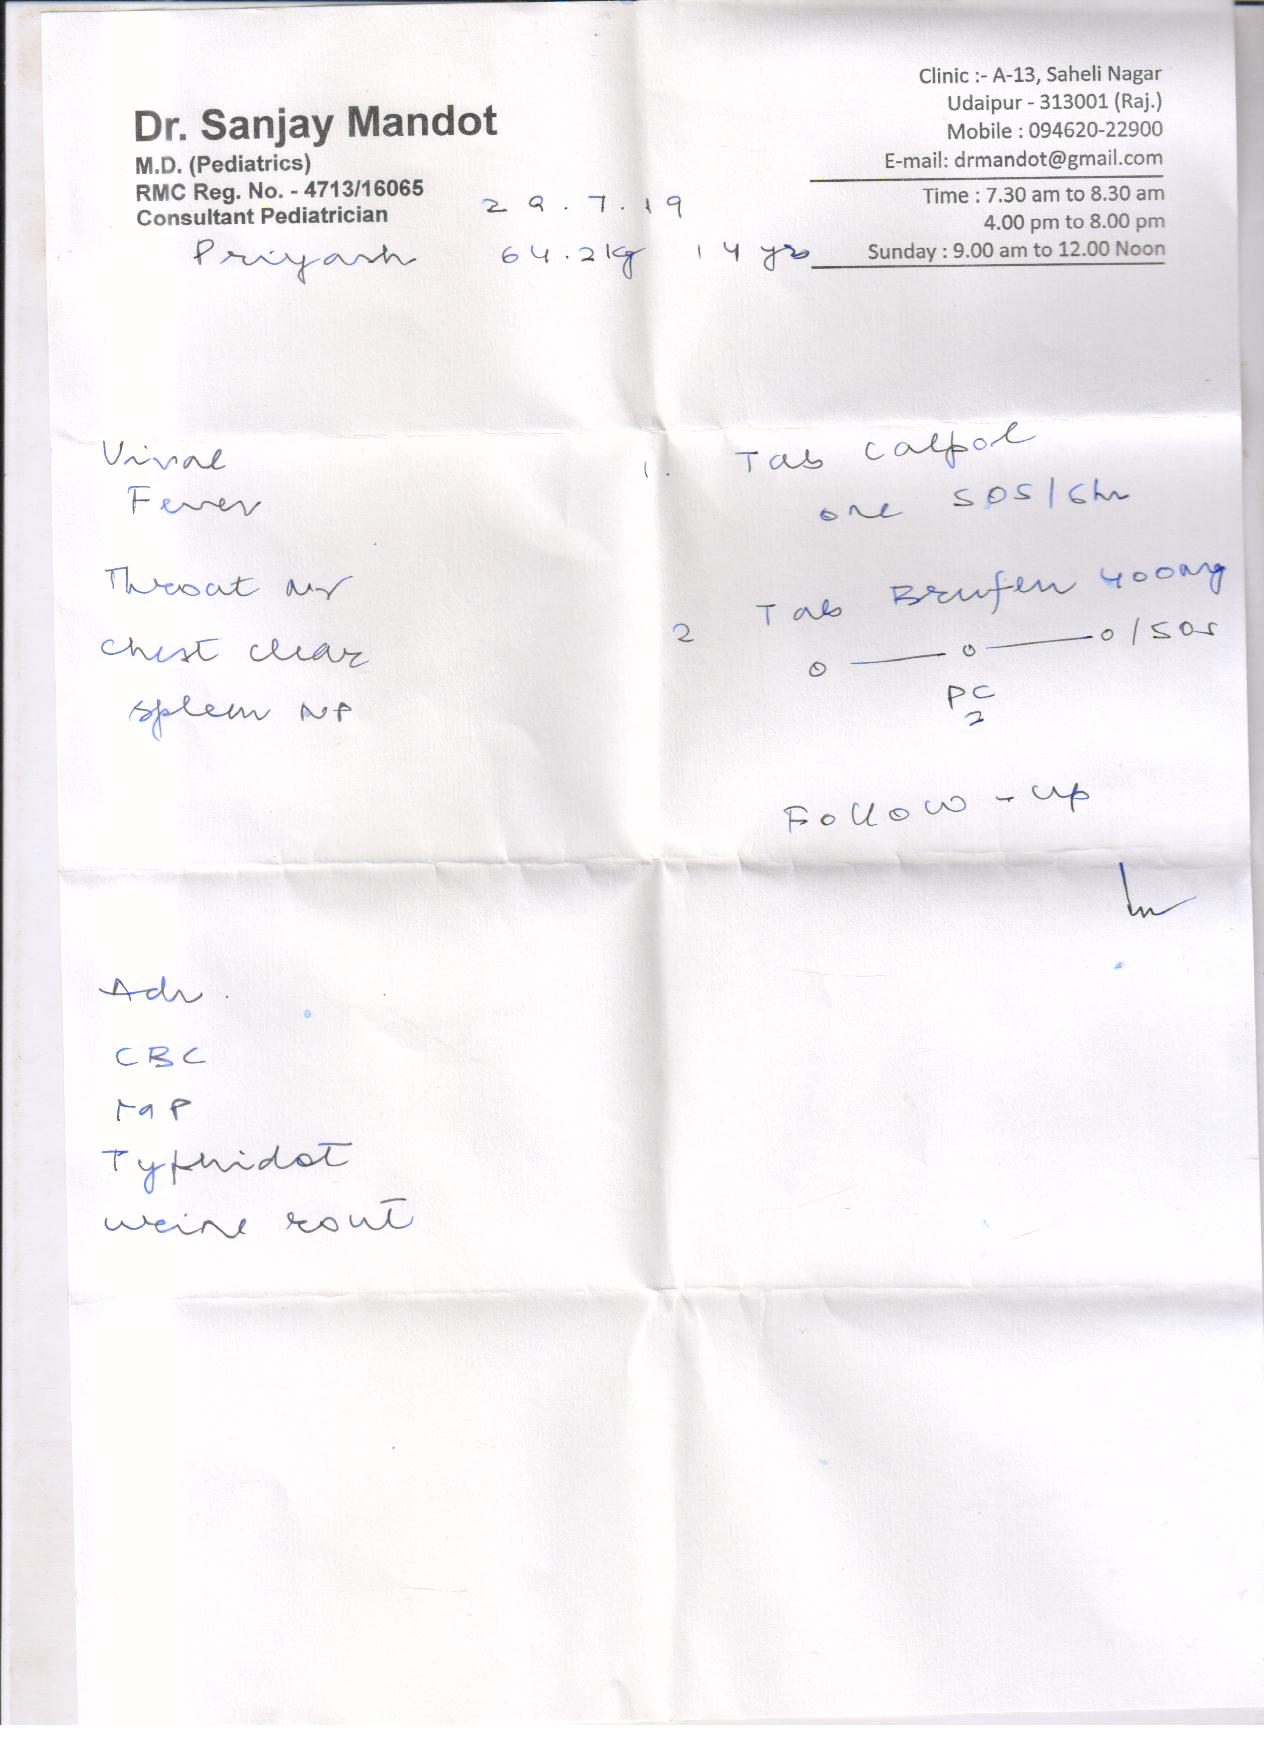 Dr. Sanjay Mandot
M.D. (Pediatrics)
RMC Reg. No. - 4713/16065
Consultant Pediatrician
Clinic :- A-13, Saheli Nagar
Udaipur - 313001 (Raj.)
Mobile : 094620-22900
E-mail: drmandot@gmail.com
Time : 7.30 am to 8.30 am
4.00 pm to 8.00 pm
Sunday : 9.00 am to 12.00 Noon
29.7.19
Priyash 64.2kg 14 yrs
Viral
Fever
Throat
Chest clear
Spleen NP
1. Tab Calpol
one SOS/6hr
2 Tab Brufen 400mg
o — o — o/SOS
PC
2
Follow-up
Adv.
CBC
MP
Typhidot
urine rout